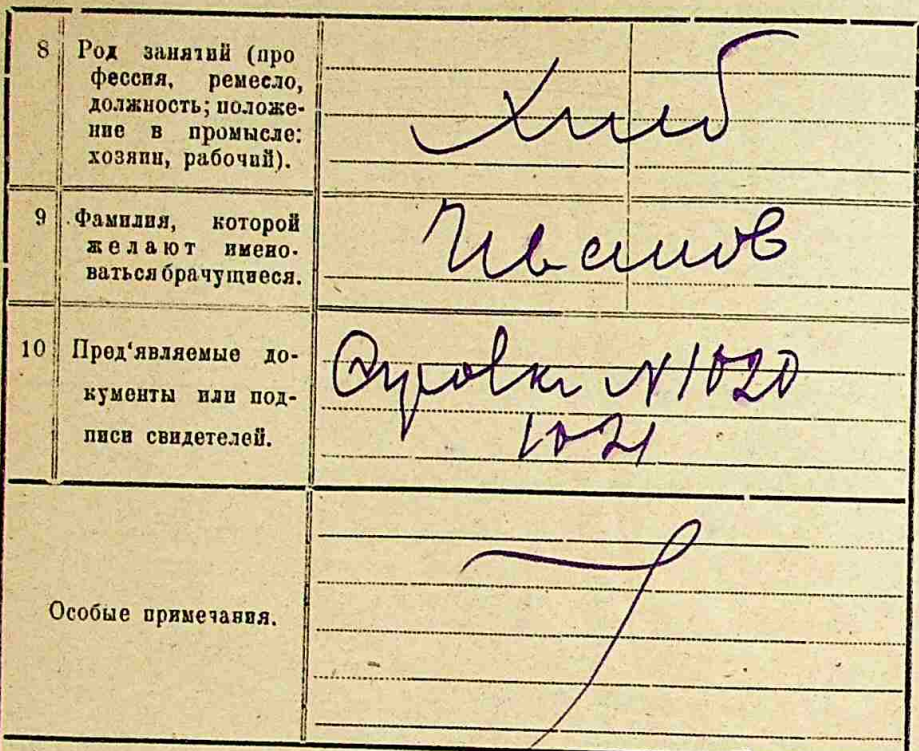 8 Род занятий (про
фессия, ремесло,
должность; положе-
ние в промысле:
хозяин, рабочий).
Хлеб
9 Фамилия, которой
желают имено-
ваться брачущиеся.
Иванов
10 Пред'являемые до-
кументы или под-
писи свидетелей.
N 1020
1021
Особые примечания.